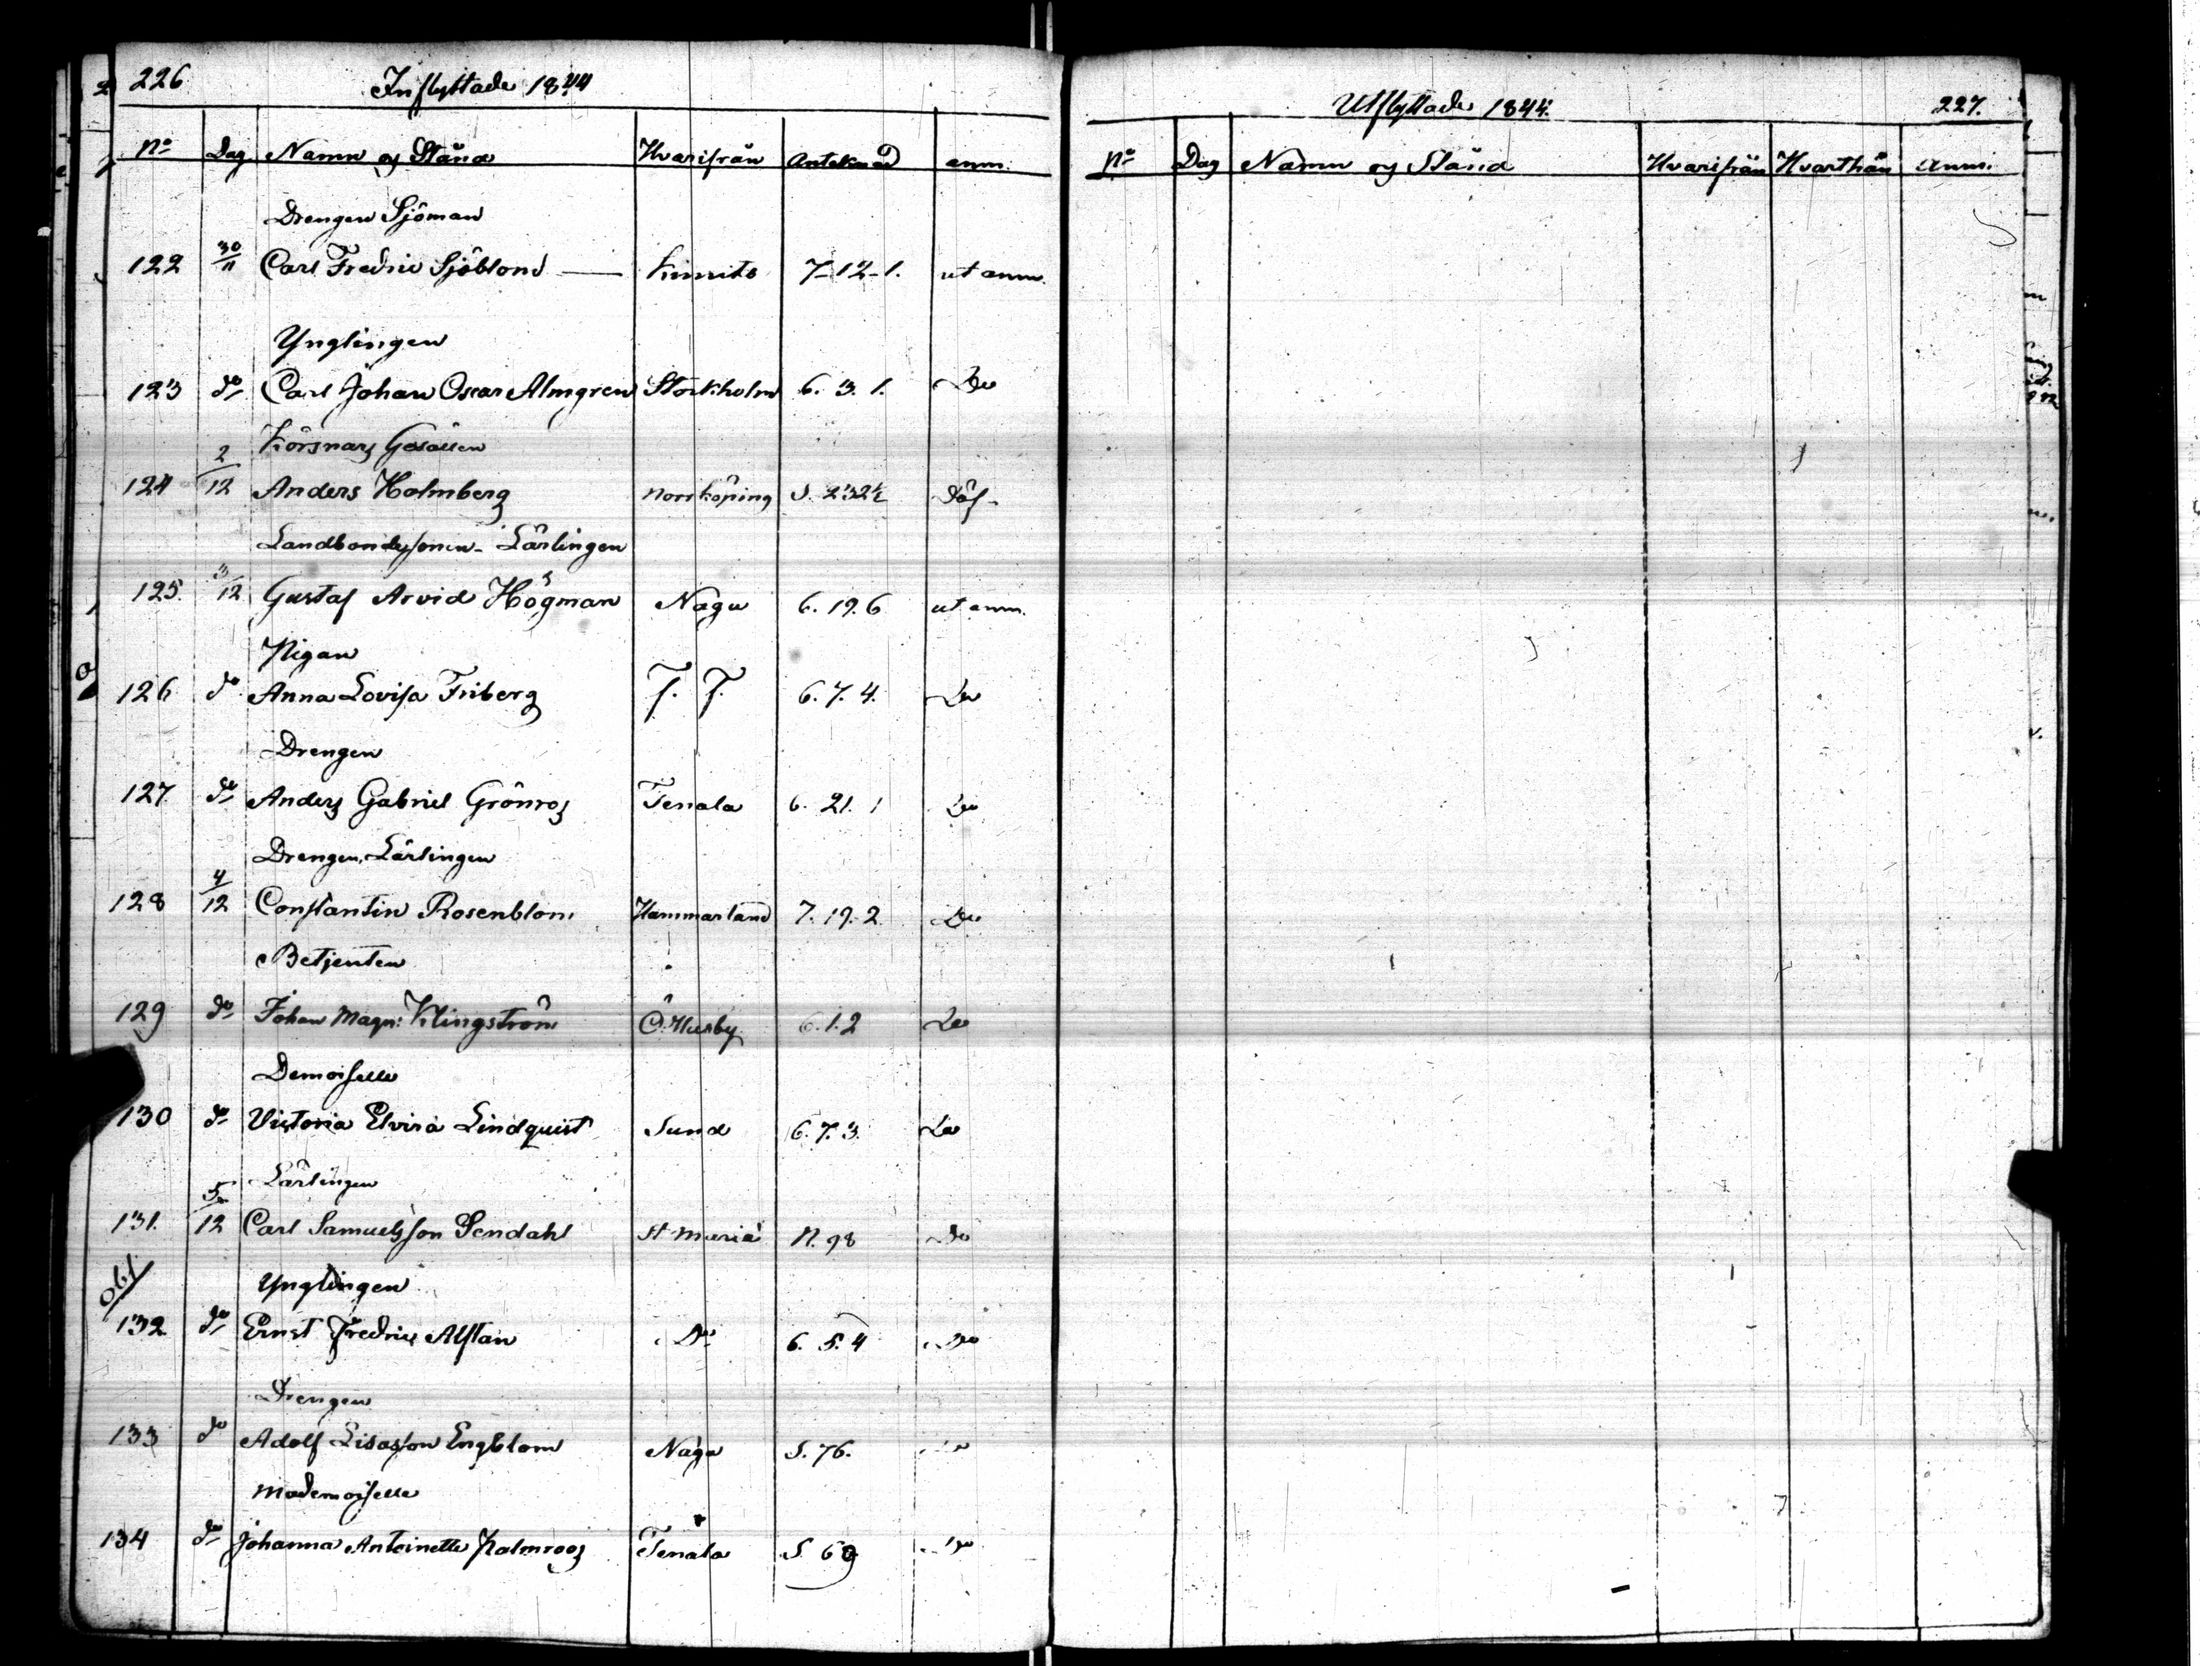 226 Inflyttade 1844
No Dag Namn og Stånd Hvarifrån Anteknad anm.
Drengen Sjöman
122 30/11 Carl Fredric Sjöblom — Kimito 7-12-1. ut anm.
Ynglingen
123 do Carl Johan Oscar Almgren Stockholm 6. 3. 1. Do
Körsnars Gesällen
124 2/12 Anders Holmberg Norrköping S. 232½
Landbondesonen - Lärlingen
125. 3/12 Gustaf Arvid Högman Nagu 6. 19. 6 ut anm.
Pigan
126 do Anna Lovisa Friberg 6. 7. 4. Do
Drengen
127. do Anders Gabriel Grönros Tenala 6. 21. 1 Do
Drengen, Lärlingen
128 4/12 Constantin Rosenblom Hammarland 7. 19. 2. Do
Betjenten
129 do Johan Magn: Klingström Ö. Husby 6. 1. 2 Do
Demoiselle
130 do Victoria Elvira Lindquist Sund 6. 7. 3. Do
Lärlingen
131. 5/12 Carl Samuelsson Sendahl St Mariä N. 98 Do
Obs
Ynglingen
132 do Ernst Fredric Alftan Do 6. 5. 4 Do
Drengen
133 do Adolf Lisasson Engblom Nagu S. 76. Do
Mademoiselle
134 do Johanna Antoinette Palmroos Tenala S. 69 Do
Utflyttade 1844. 227.
No Dag Namn og Stånd Hvarifrån Hvarthän Anm.